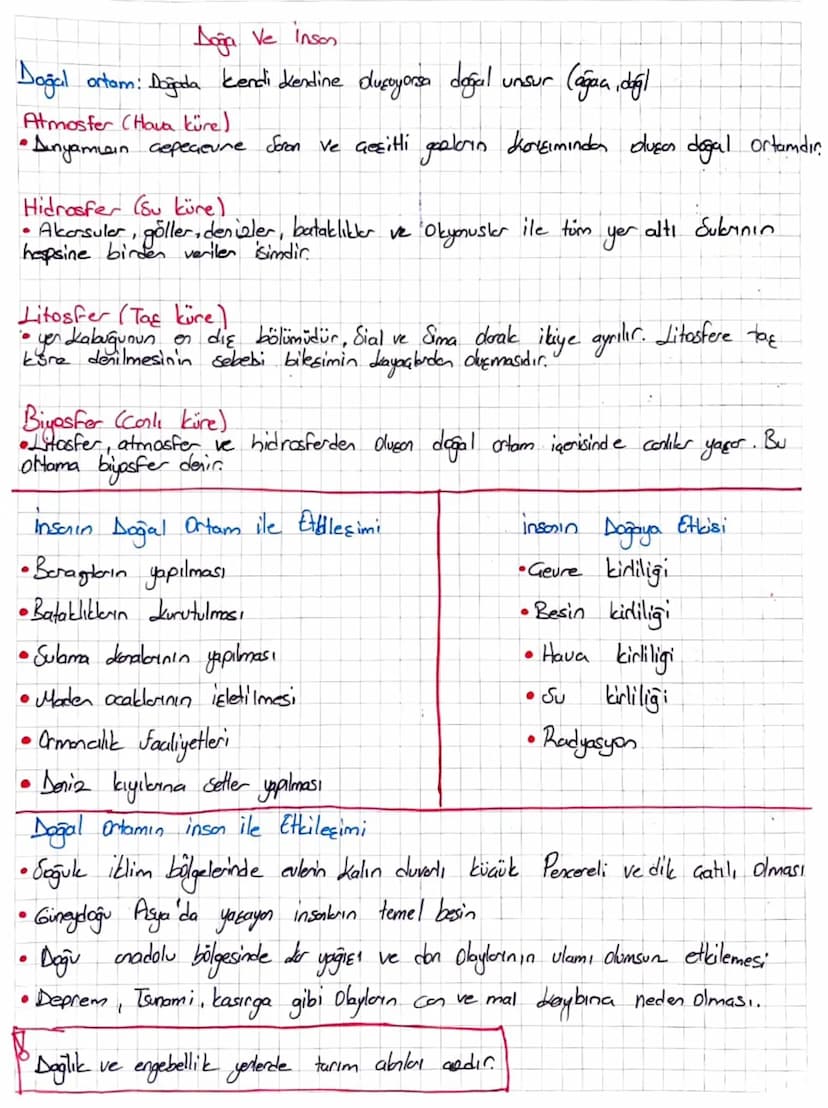 Doğa Ve İnsan
Doğal ortam: Doğada kendi kendine oluşuyorsa doğal unsur (ağaç, dağ)
Atmosfer (Hava küre)
• Dünyamızın çepeçevre saran ve çeşitli gazların karışımından oluşan doğal ortamdır.
Hidrosfer (Su küre)
• Akarsular, göller, denizler, bataklıklar ve Okyanuslar ile tüm yer altı Sularının
hepsine birden verilen isimdir.
Litosfer (Taş küre)
• yer kabuğunun en dış bölümüdür, Sial ve Sima olarak ikiye ayrılır. Litosfere taş
küre denilmesinin sebebi bileşimin kayaçlardan oluşmasıdır.
Biyosfer (Canlı küre)
• Litosfer, atmosfer ve hidrosferden oluşan doğal ortam içerisinde canlılar yaşar. Bu
ortama biyosfer denir.
İnsanın Doğal Ortam ile Etkileşimi
• Barajların yapılması
• Bataklıkların kurutulması
• Sulama kanalarının yapılması
• Maden ocaklarının işletilmesi
• Ormancılık faaliyetleri
• Deniz kıyılarına setler yapılması
insanın Doğaya Etkisi
• Çevre kirliliği
• Besin kirliliği
• Hava kirliliği
• Su kirliliği
• Radyasyon
Doğal Ortamın insan ile Etkileşimi
• Soğuk iklim bölgelerinde evlerin kalın duvarlı küçük Pencereli ve dik çatılı olması
• Güneydoğu Asya'da yaşayan insanların temel besin
• Doğu anadolu bölgesinde kar yağışı ve don Olaylarının ulamı olumsun etkilemesi
• Deprem, Tsunami, kasırga gibi Olayların can ve mal kaybına neden olması.
Dağlık ve engebellik yerlerde tarım alanları azdır.